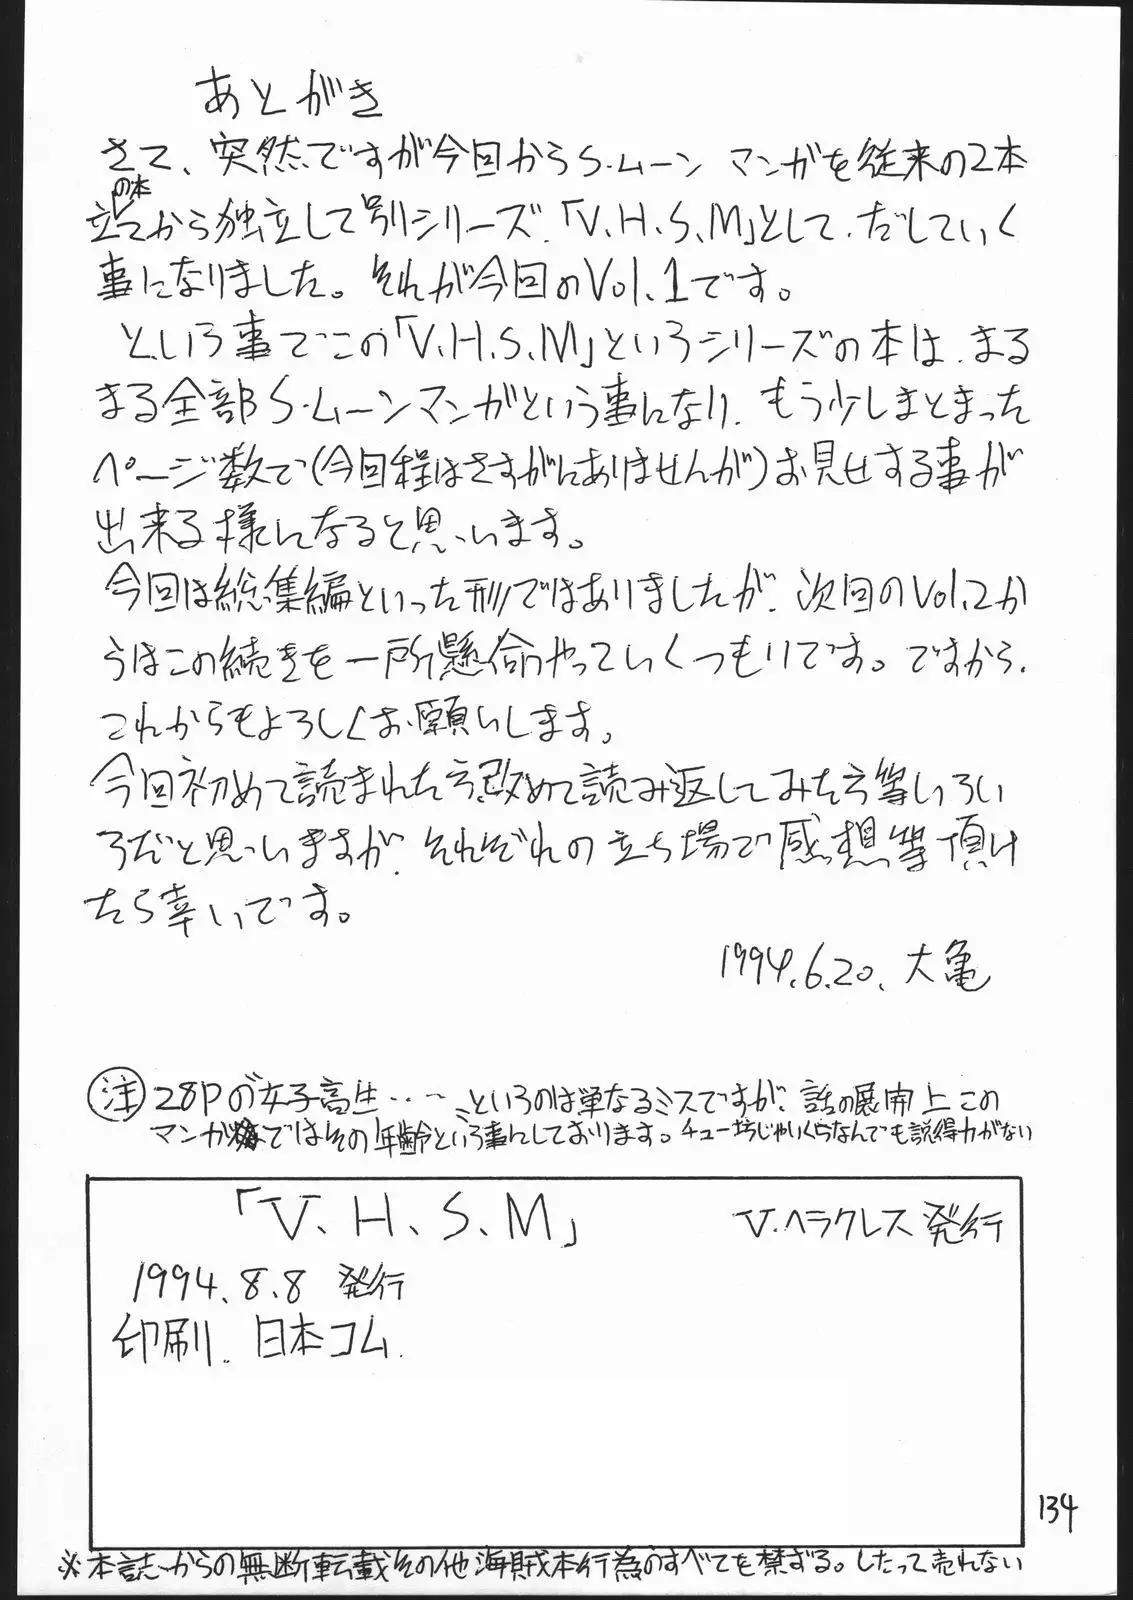 あとがき
さて、突然ですが今回からS.ムーン マンガを従来の2本
立ての本から独立して別シリーズ.「V.H.S.M」として.だしていく
事になりました。それが今回のVol.1です。
という事でこの「V.H.S.M」というシリーズの本は.まる
まる全部S.ムーンマンガという事になり.もう少しまとまった
ページ数で(今回程はさすがにありませんが)お見せする事が
出来る様になると思います。
今回は総集編といった形ではありましたが.次回のVol.2か
らはこの続きを一所懸命やっていくつもりです。ですから.
これからもよろしくお願いします。
今回初めて読まれた方.改めて読み返してみた方等いろい
ろだと思いますが.それぞれの立ち場で感想等頂け
たら幸いです。
1994.6.20. 大亀
注 28Pの"女子高生・・・・ というのは単なるミスですが.話の展開上この
マンガではその年齢という事にしております。チュー坊じゃいくらなんでも説得力がない
「V.H.S.M」 V.ヘラクレス発行
1994.8.8 発行
印刷. 日本コム.
134
※本誌からの無断転載その他海賊本行為のすべてを禁ずる。したって売れない